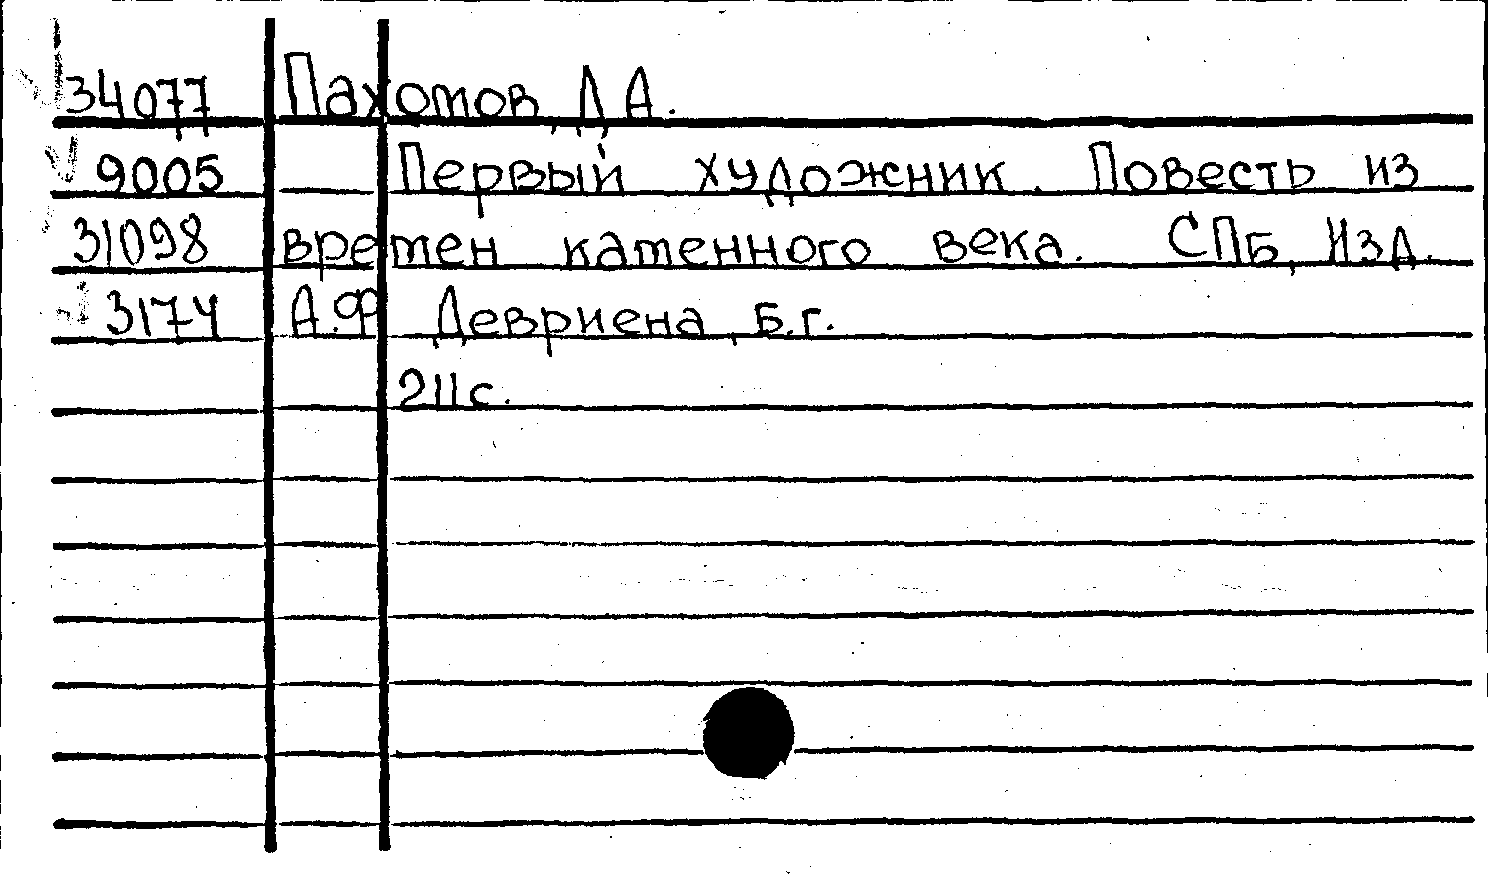 34077 Пахомов, Д А.
9005 Первый художник. Повесть из
31098 времен каменного века. СПб, Изд.
3174 А.Ф Девриена, б.г.
211 с.